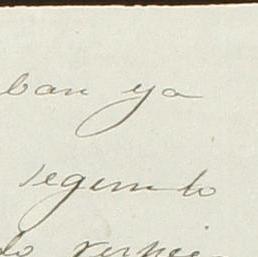 ban ya
segundo
do